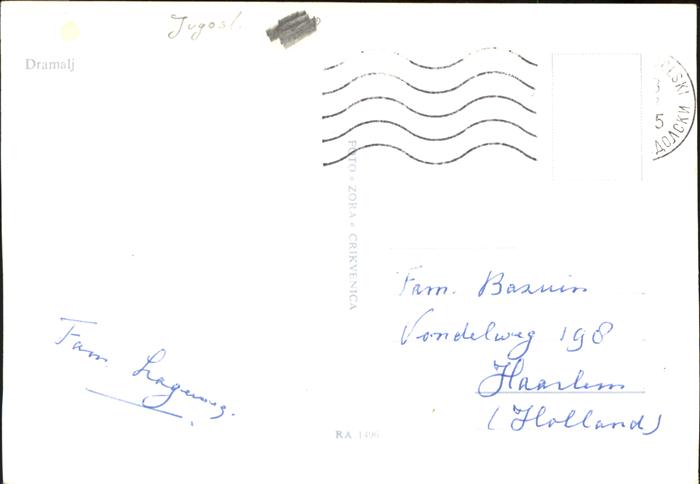 Jugosl.
Dramalj
FOTO "ZORA" CRIKVENICA
5
ДОЛСКИ
Fam. Bazuin
Vondelweg 198
Haarlem
(Holland)
Fam. Lageweg.
RA 1496